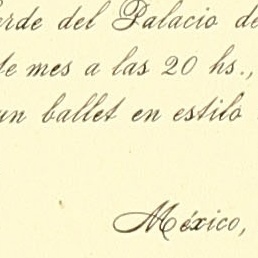 erde del Palacio de
te mes a las 20 hs.,
un ballet en estilo
México,